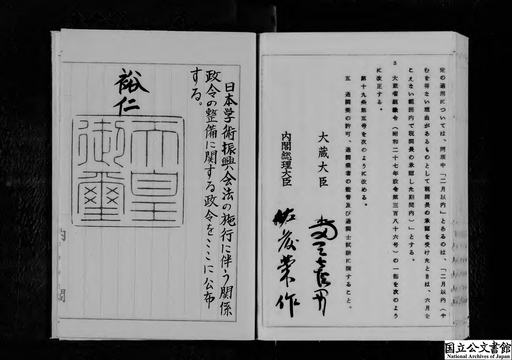 定の適用については、同項中「二月以内」とあるのは、「二月以内（や
むを得ない理由があるものとして税関長の承認を受けたときは、六月を
こえない範囲内で税関長の承認した期間内）」とする。
3 大蔵省組織令（昭和二十七年政令第三百八十六号）の一部を次のよう
に改正する。
第十九条第五号を次のように改める。
五 通関業の許可、通関業者の監督及び通関士試験に関すること。
大蔵大臣
内閣総理大臣 佐藤榮作
日本学術振興会法の施行に伴う関係
政令の整備に関する政令をここに公布
する。
裕仁
天皇
御璽
内 閣
国立公文書館
National Archives of Japan